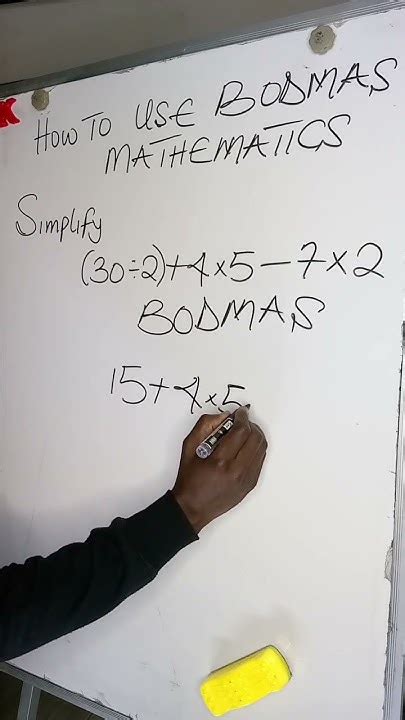 HOW TO USE BODMAS
MATHEMATICS
Simplify
(30÷2)+4×5-7×2
BODMAS
15+4×5